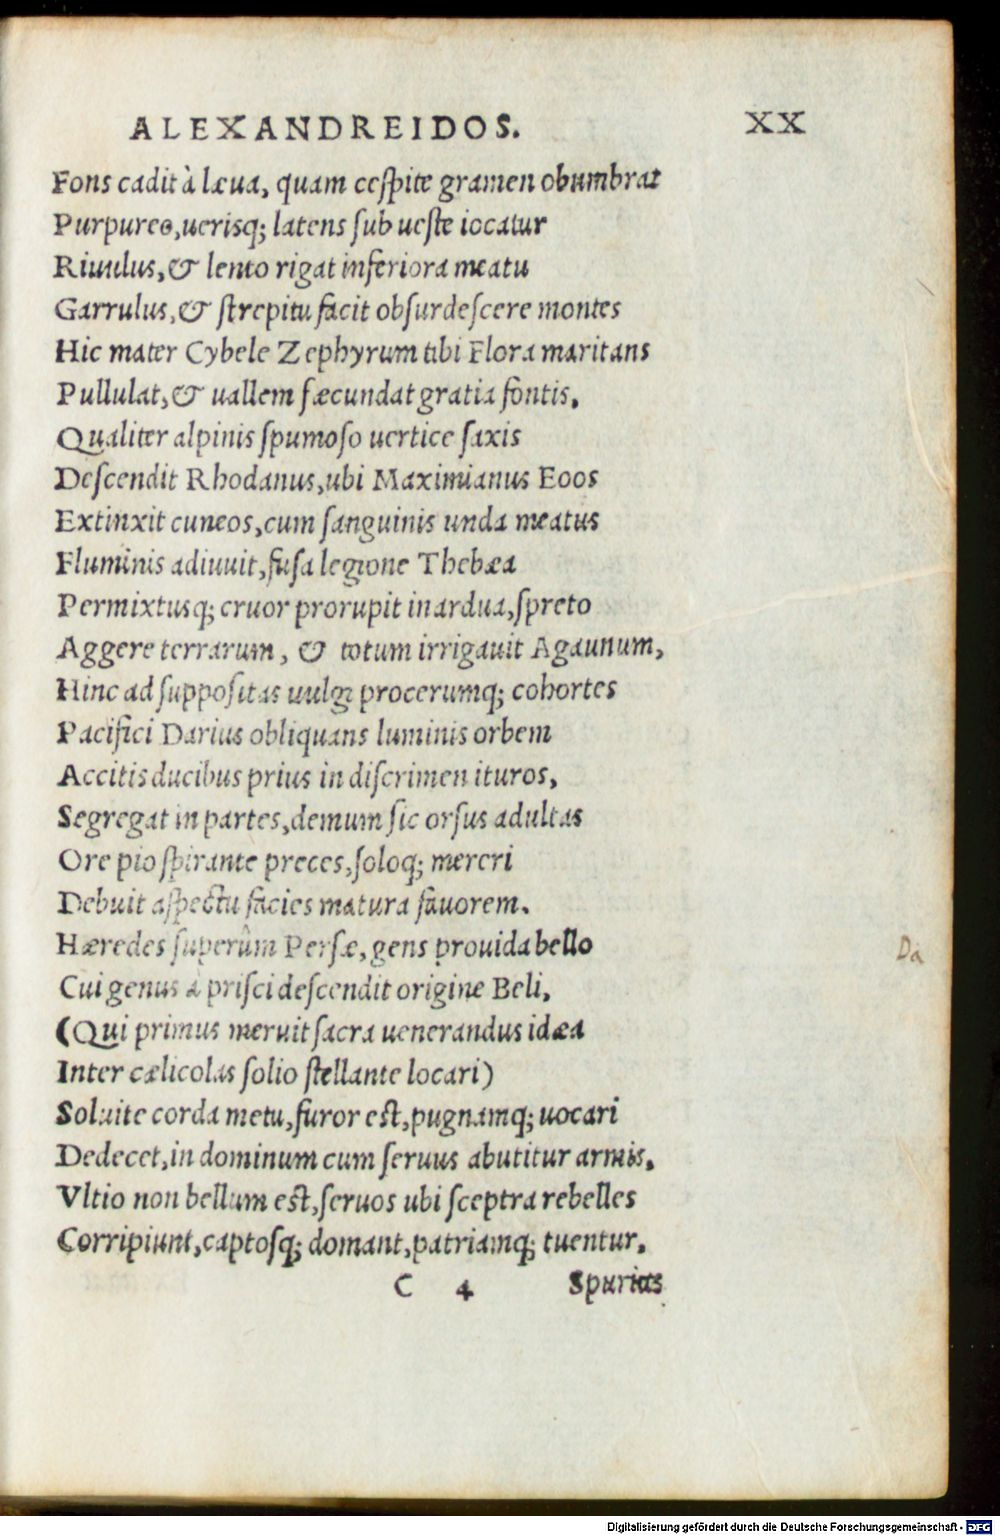 ALEXANDREIDOS. XX
Fons cadit à læua, quam cespite gramen obumbrat
Purpureo, uerisq; latens sub ueste iocatur
Riuulus, & lento rigat inferiora meatu
Garrulus, & strepitu facit obsurdescere montes
Hic mater Cybele Zephyrum tibi Flora maritans
Pullulat, & uallem fæcundat gratia fontis.
Qualiter alpinis spumoso uertice saxis
Descendit Rhodanus, ubi Maximianus Eoos
Extinxit cuneos, cum sanguinis unda meatus
Fluminis adiuuit, fusa legione Thebæa
Permixtusq; cruor prorupit in ardua, spreto
Aggere terrarum, & totum irrigauit Agaunum,
Hinc ad suppositas uulgi procerumq; cohortes
Pacifici Darius obliquans luminis orbem
Accitis ducibus prius in discrimen ituros,
Segregat in partes, demum sic orsus adultas
Ore pio spirante preces, soloq; mereri
Debuit aspectu facies matura fauorem.
Hæredes superûm Persæ, gens prouida bello
Cui genus à prisci descendit origine Beli,
(Qui primus meruit sacra uenerandus idæa
Inter cælicolas solio stellante locari)
Soluite corda metu, furor est, pugnamq; uocari
Dedecet, in dominum cum seruus abutitur armis.
Vltio non bellum est, seruos ubi sceptra rebelles
Corripiunt, captosq; domant, patriamq; tuentur.
C 4 Spurius
Da
Digitalisierung gefördert durch die Deutsche Forschungsgemeinschaft - DFG